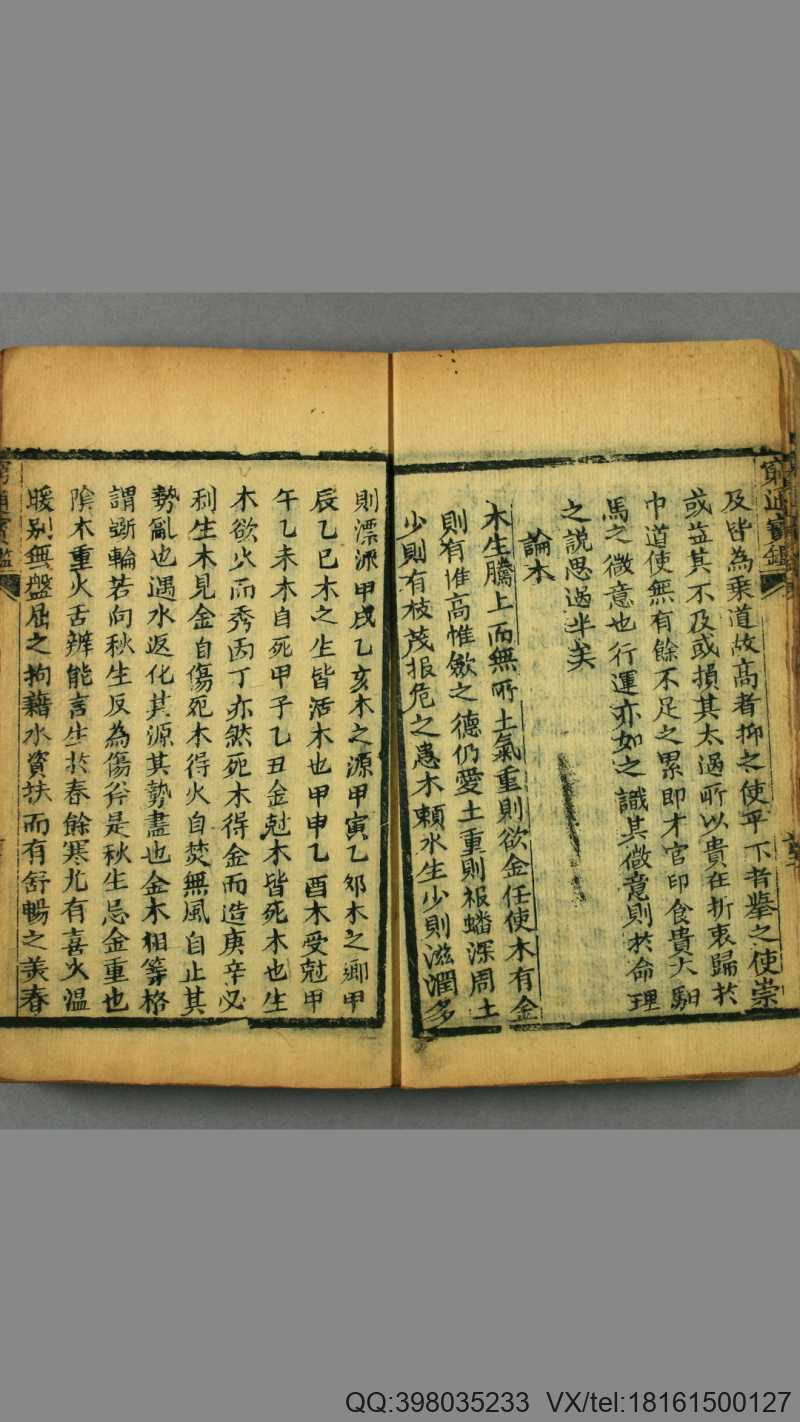 窮通寶鑑
及皆為乘道故高者抑之使平下者举之使崇
或益其不及或損其太過所以貴在折衷歸於
中道使無有餘不足之累即才官印食貴人馹
馬之微意也行運亦如之識其微意則於命理
之説思過半矣
論木
木生騰上而無所土氣重則欲金任使木有金
則有惟高惟歛之德仍愛土重則根蟠深周土
少則有枝茂根危之患木賴水生少則滋潤多
則漂沠甲戌乙亥木之源甲寅乙夘木之鄉甲
辰乙巳木之生皆活木也甲申乙酉木受尅甲
午乙未木自死甲子乙丑金尅木皆死木也生
木欲火而秀丙丁亦然死木得金而造庚辛必
利生木見金自傷死木得火自焚無風自止其
勢亂也遇水返化其源其勢盡也金木相等格
謂斲輪若向秋生反為傷斧是秋生忌金重也
陰木重火舌辨能言生於春餘寒尤有喜火温
暖别無盤屈之拘藉水資扶而有舒暢之美春
窮通寶鑑
QQ:398035233 VX/tel:18161500127